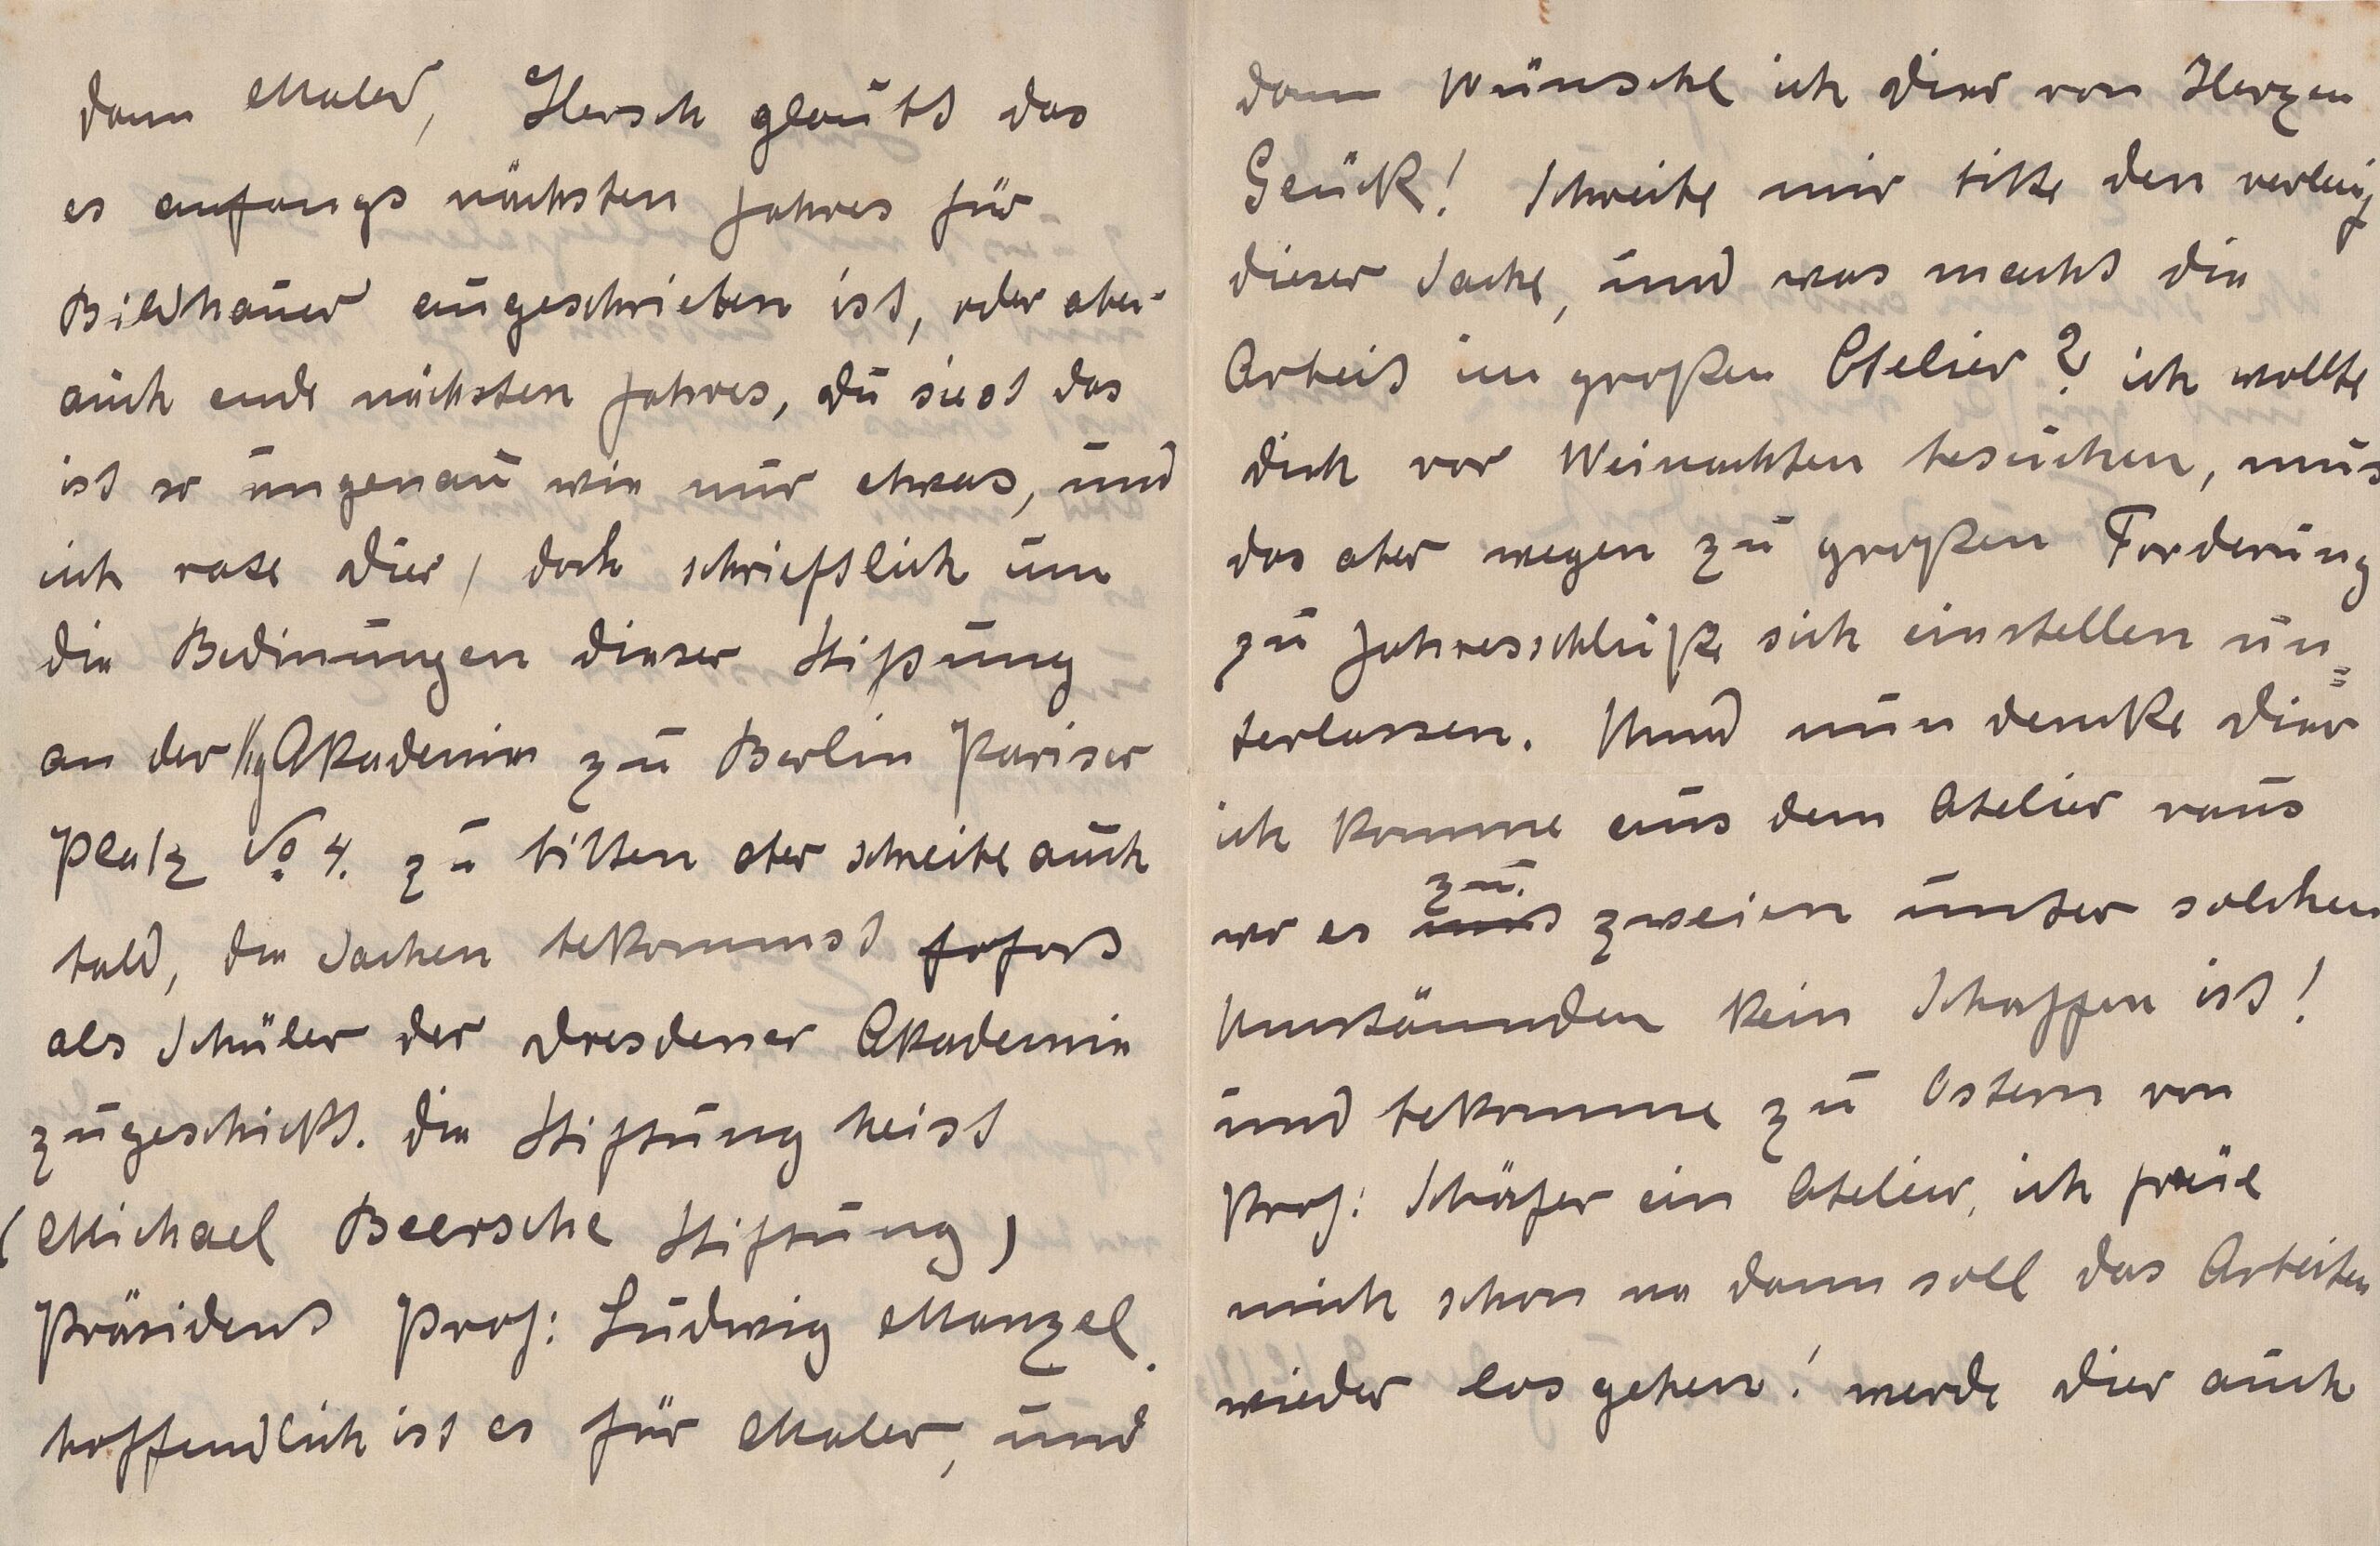 dann Maler, Hersch glaubt das
es anfangs nächsten Jahres für
Bildhauer ausgeschrieben ist, oder aber
auch ende nächsten Jahres, du siest das
ist so ungenau wie nur etwas, und
ich rate dier, doch schrieftlich um
die Bedinungen dieser Stiftung
an der Kg Akademie zu Berlin Pariser
Platz No 4. zu bitten aber schreibe auch
bald, die Sachen bekommst sofort
als Schüler der Dresdener Akademie
zugeschickt. die Stiftung heist
(Michael Beersche Stiftung)
Präsident Prof: Ludwig Manzel.
hoffendlich ist es für Maler, und
dann Wünsche ich dier von Herzen
Glück! Schreibe mir bitte den verlauf
dieser Sache, und was macht die
Arbeit im großen Atelier? ich wollte
dich vor Weinachten besuchen, mus
das aber wegen zu großen Forderung
zu Jahresschluße sich einstellen un=
terlassen. Und nun dencke dier
ich komme aus dem Atelier raus
wo es zu zweien unter solchen
Umständen kein Schaffen ist!
und bekomme zu Ostern von
Prof: Schäfer ein Atelier, ich freue
mich schon na dann soll das Arbeiten
wieder los gehen! werde dier auch